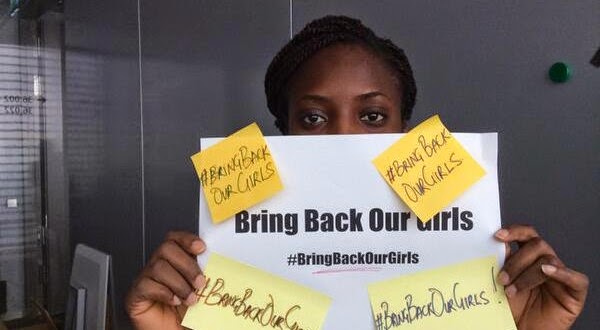 36,002
36,022
#BRINGBACK
OUR GIRLS
#BRINGBACK
OUR GIRLS
Bring Back Our Girls
#BringBackOurGirls
#BRINGBACKOURGIRLS
#BRINGBACKOURGIRLS!